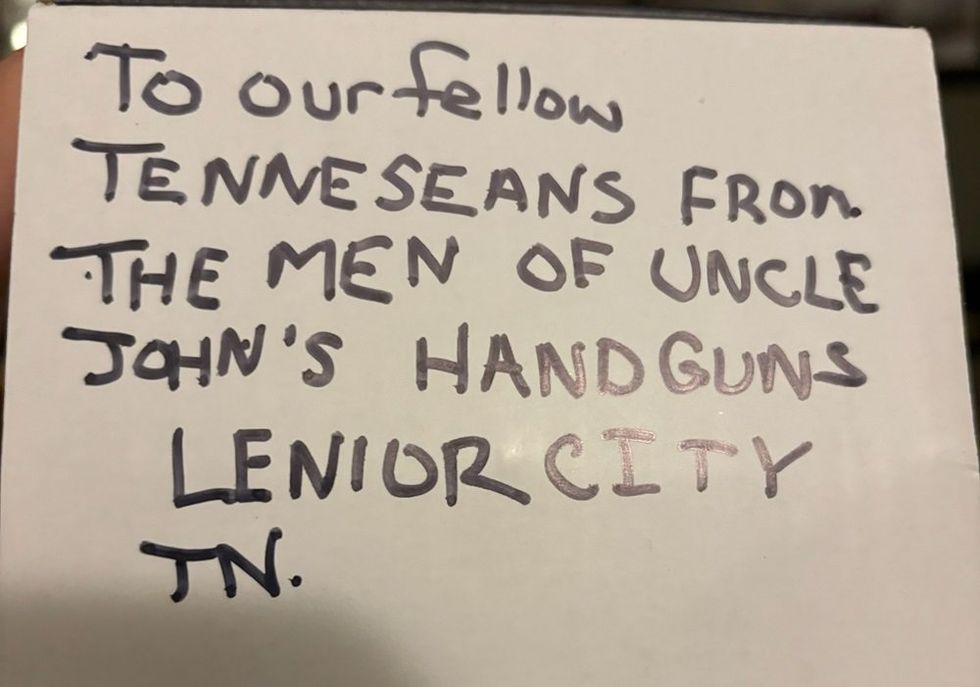 To our fellow
TENNESEANS FROM
THE MEN OF UNCLE
JOHN'S HANDGUNS
LENIOR CITY
TN.